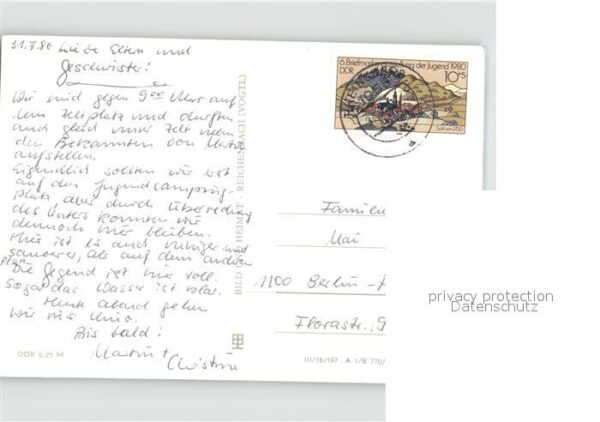 31.7.80 Liebe Eltern und
Geschwister!
Wir sind gegen 9⁰⁰ Uhr auf
dem Zeltplatz und durften
und gleich unser Zelt neben
den Bekannten von Martin
aufstellen.
Eigendlich sollten wir erst
auf den Jugendcamping-
platz aber durch Überredung
des konnten wir
dennoch hier bleiben.
Hier ist es auch ruhiger und
sauberer, als auf dem anderen
Platz
Die Gegend ist hier toll.
Sogar das Wasser ist klar.
Heute abend gehen
wir ins Kino.
Bis bald!
Martin +
Christine
DDR 0,25 M
BILD UND HEIMAT · REICHENBACH (VOGTL)
6. Briefmarkenausstellung der Jugend 1980
DDR
10+5
Suhl um 1700
Familie
Mai
1100 Berlin -
Florastr. 9
III/18/197 A 1/B 770/
privacy protection
Datenschutz